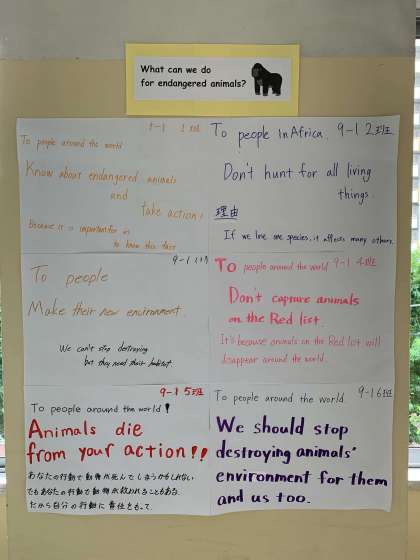 What can we do
for endangered animals?
9-1 1班
To people around the world
Know about endangered animals
and
take action!
Because it is important for us
to know this fact
To people in Africa. 9-1 2班
Don't hunt for all living
things.
理由
If we line one species, it affects many others.
9-1
To people
Make their new environment.
We can't stop destroying
but they need their habitat.
To people around the world 9-1 4班
Don't capture animals
on the Red list.
It's because animals on the Red list will
disappear around the world.
9-1 5班
To people around the world!
Animals die
from your action!!
あなたの行動で動物が死んでしまうかもしれない
でもあなたの行動で動物が救われることもある
だから自分の行動に責任をもって。
To people around the world. 9-1 6班
We should stop
destroying animals'
environment for them
and us too.